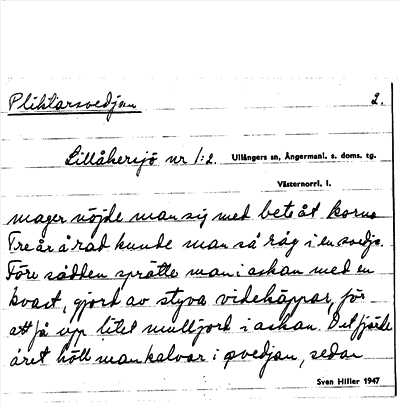 Pliktarsvedjan 2.
Lillåkersjö nr 1:2. Ullångers sn, Ångermanl. s. doms. tg.
Västernorrl. l.
mager nöjde man sig med bete åt korna
Tre år å rad kunde man så råg i en svedja.
Före sådden sprätte man i askan med en
kvast, gjord av styva videkäppar, för
att få upp litet mulljord i askan. Det fjärde
året höll man kalvar i svedjan, sedan
Sven Hiller 1947